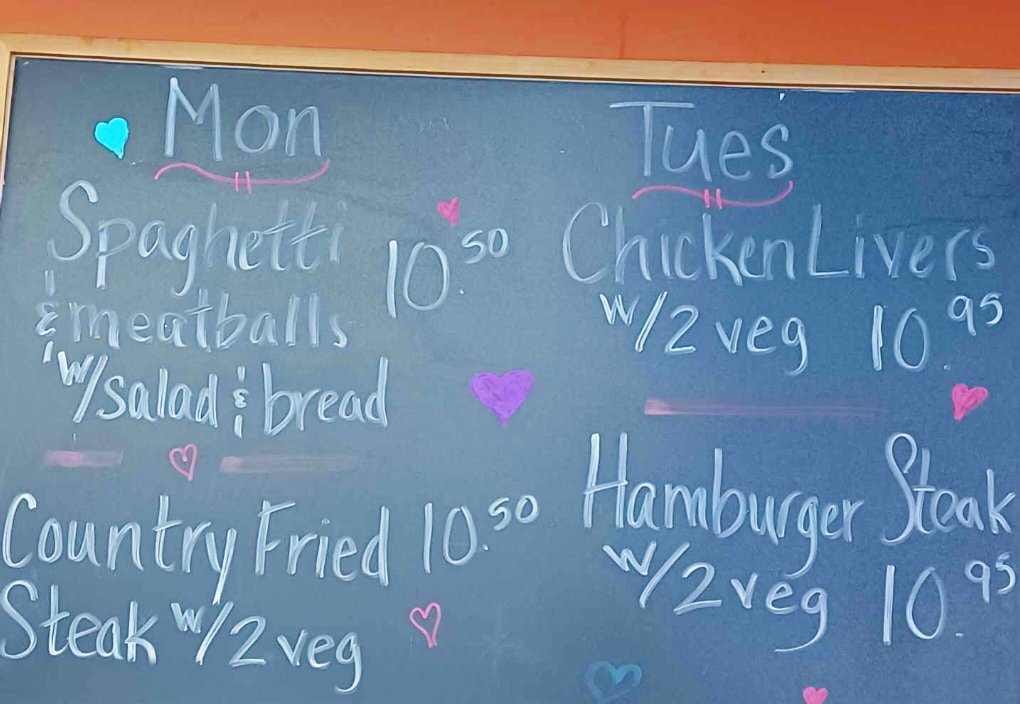 Mon
Spaghetti 10.50
& meatballs
w/salad & bread
Country Fried 10.50
Steak w/2 veg
Tues
Chicken Livers
w/2 veg 10.95
Hamburger Steak
w/2 veg 10.95